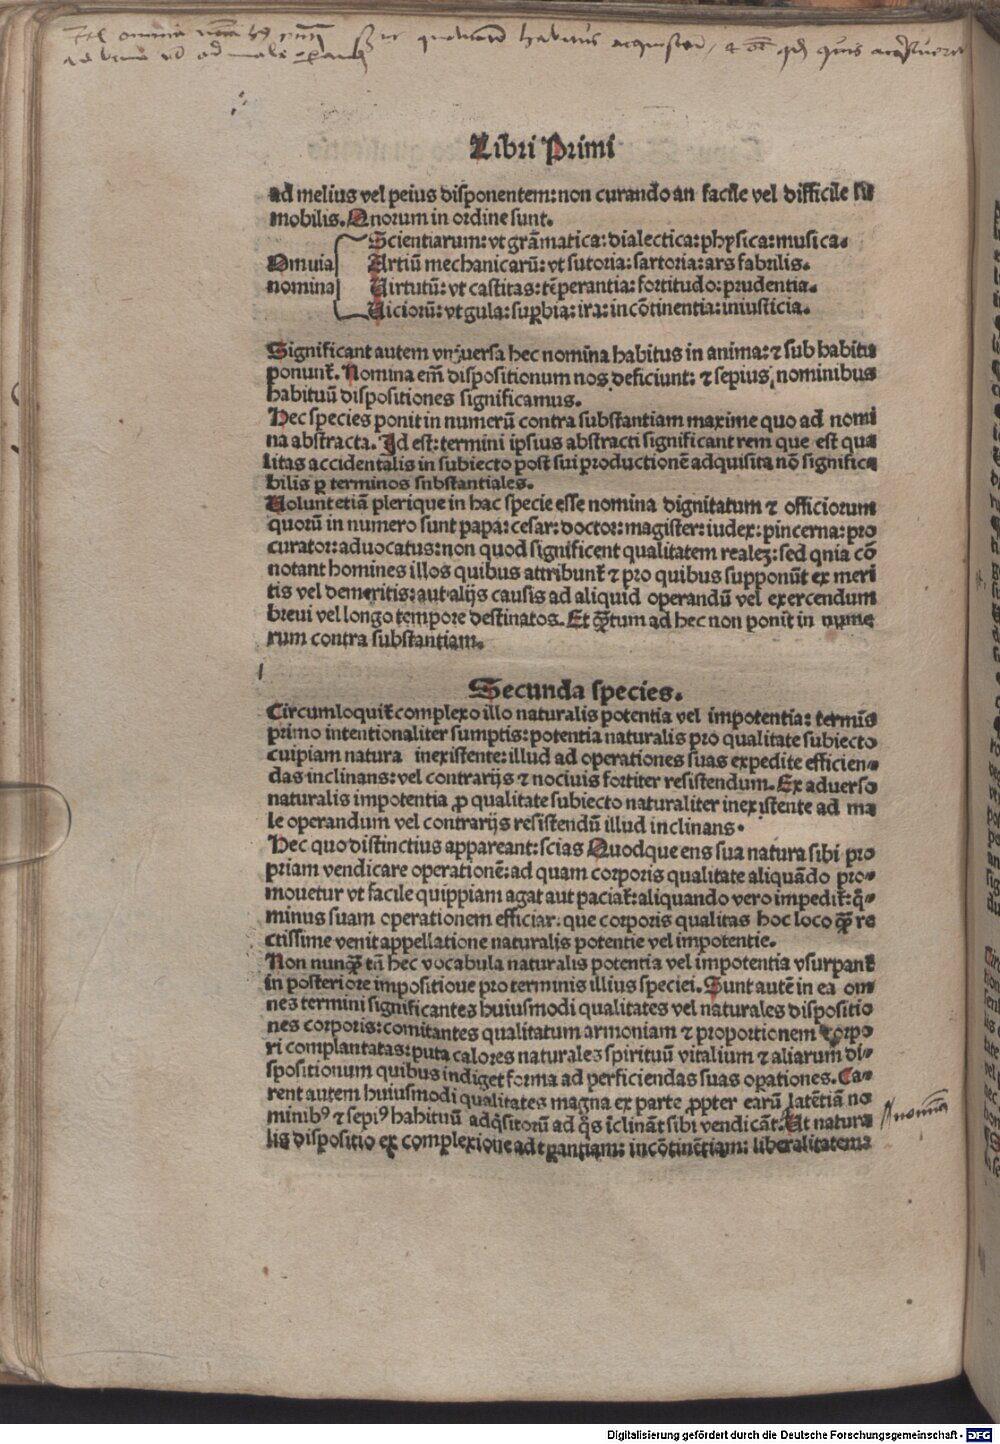 omnia
habitus
quis
Libri Primi
ad melius vel peius disponentem: non curando an facile vel difficile sit
mobilis. Quorum in ordine sunt.
Scientiarum: vt grãmatica: dialectica: phisica: musica.
Omnia Artiũ mechanicarũ: vt sutoria: sartoria: ars fabrilis.
nomina Uirtutũ: vt castitas: tẽperantia: fortitudo: prudentia.
Uiciorũ: vt gula: suꝑbia: ira: incõtinentia: iniusticia.
Significant autem vniuersa hec nomina habitus in anima: ⁊ sub habitu
ponunt̃. Nomina em̃ dispositionum nos deficiunt: ⁊ sepius nominibus
habituũ dispositiones significamus.
Hec species ponit in numerũ contra substantiam maxime quo ad nomi
na abstracta. Id est: termini ipsius abstracti significant rem que est qua
litas accidentalis in subiecto post sui productionẽ adquisita nõ significa
bilis ꝑ terminos substantiales.
Uolunt etiã plerique in hac specie esse nomina dignitatum ⁊ officiorum
quorũ in numero sunt papa: cesar: doctor: magister: iudex: pincerna: pro
curator: aduocatus: non quod significent qualitatem realeȝ: sed qnia cõ
notant homines illos quibus attribunt̃ ⁊ pro quibus supponũt ex meri
tis vel demeritis: aut alijs causis ad aliquid operandũ vel exercendum
breui vel longo tempore destinatos. Et qᷓtum ad hec non ponit in nume
rum contra substantiam.
Secunda species.
Circumloquit̃ complexo illo naturalis potentia vel impotentia: termĩs
primo intentionaliter sumptis: potentia naturalis pro qualitate subiecto
cuipiam natura inexistente: illud ad operationes suas expedite efficien-
das inclinans: vel contrarijs ⁊ nociuis fortiter resistendum. Ex aduerso
naturalis impotentia ꝓ qualitate subiecto naturaliter inexistente ad ma
le operandum vel contrarijs resistendũ illud inclinans.
Hec quo distinctius appareant: scias Quodque ens sua natura sibi pro
priam vendicare operationẽ: ad quam corporis qualitate aliquãdo pro-
mouetur vt facile quippiam agat aut paciat̃: aliquando vero impedit̃: q̃-
minus suam operationem efficiat: que corporis qualitas hoc loco qᷓ re
ctissime venit appellatione naturalis potentie vel impotentie.
Non nunqᷓ tñ hec vocabula naturalis potentia vel impotentia vsurpant̃
in posteriore impositioue pro terminis illius speciei. Sunt autẽ in ea om
nes termini significantes huiusmodi qualitates vel naturales dispositio
nes corporis: comitantes qualitatum armoniam ⁊ proportionem corpo
ri complantatas: puta calores naturales spirituũ vitalium ⁊ aliarum di-
spositionum quibus indiget forma ad perficiendas suas oꝑationes. Ca-
rent autem huiusmodi qualitates magna ex parte ꝓpter earũ latẽtiã no
minibꝰ ⁊ sepiꝰ habituũ adq̃sitorũ ad q̃s ĩclinãt sibi vendicãt. Ut natura
lis dispositio ex complexioue ad tꝑantiam: incõtinẽtiam: liberalitatem
nomina
Digitalisierung gefördert durch die Deutsche Forschungsgemeinschaft - DFG